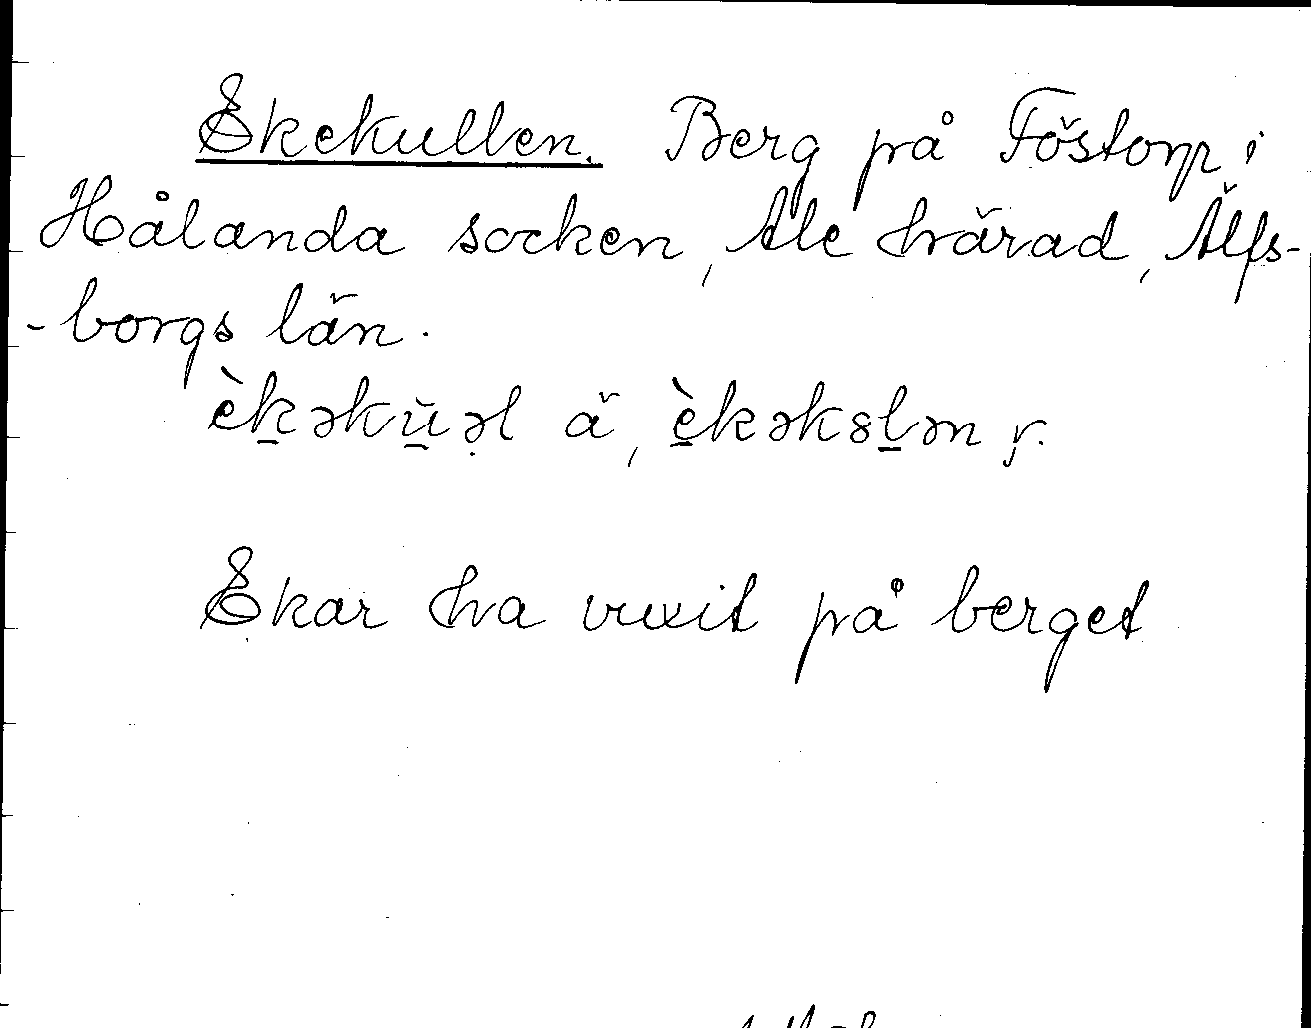 Ekekullen. Berg på Föstorp i
Hålanda socken, Ale härad, Älfs-
-borgs län.
èkəkŭəl ä, èkəkslən r.
Ekar ha vuxit på berget